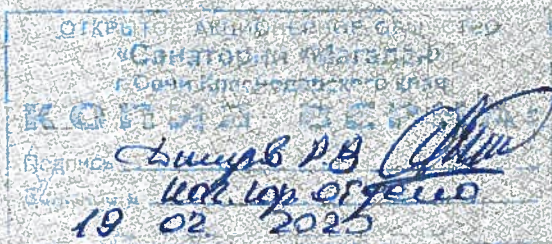 ОТКРЫТОЕ АКЦИОНЕРНОЕ ОБЩЕСТВО
«Санаторий «Магадан»
г.Сочи Краснодарского края
КОПИЯ ВЕРНА
Подпись
нач. юр. отдела
19 02 2020